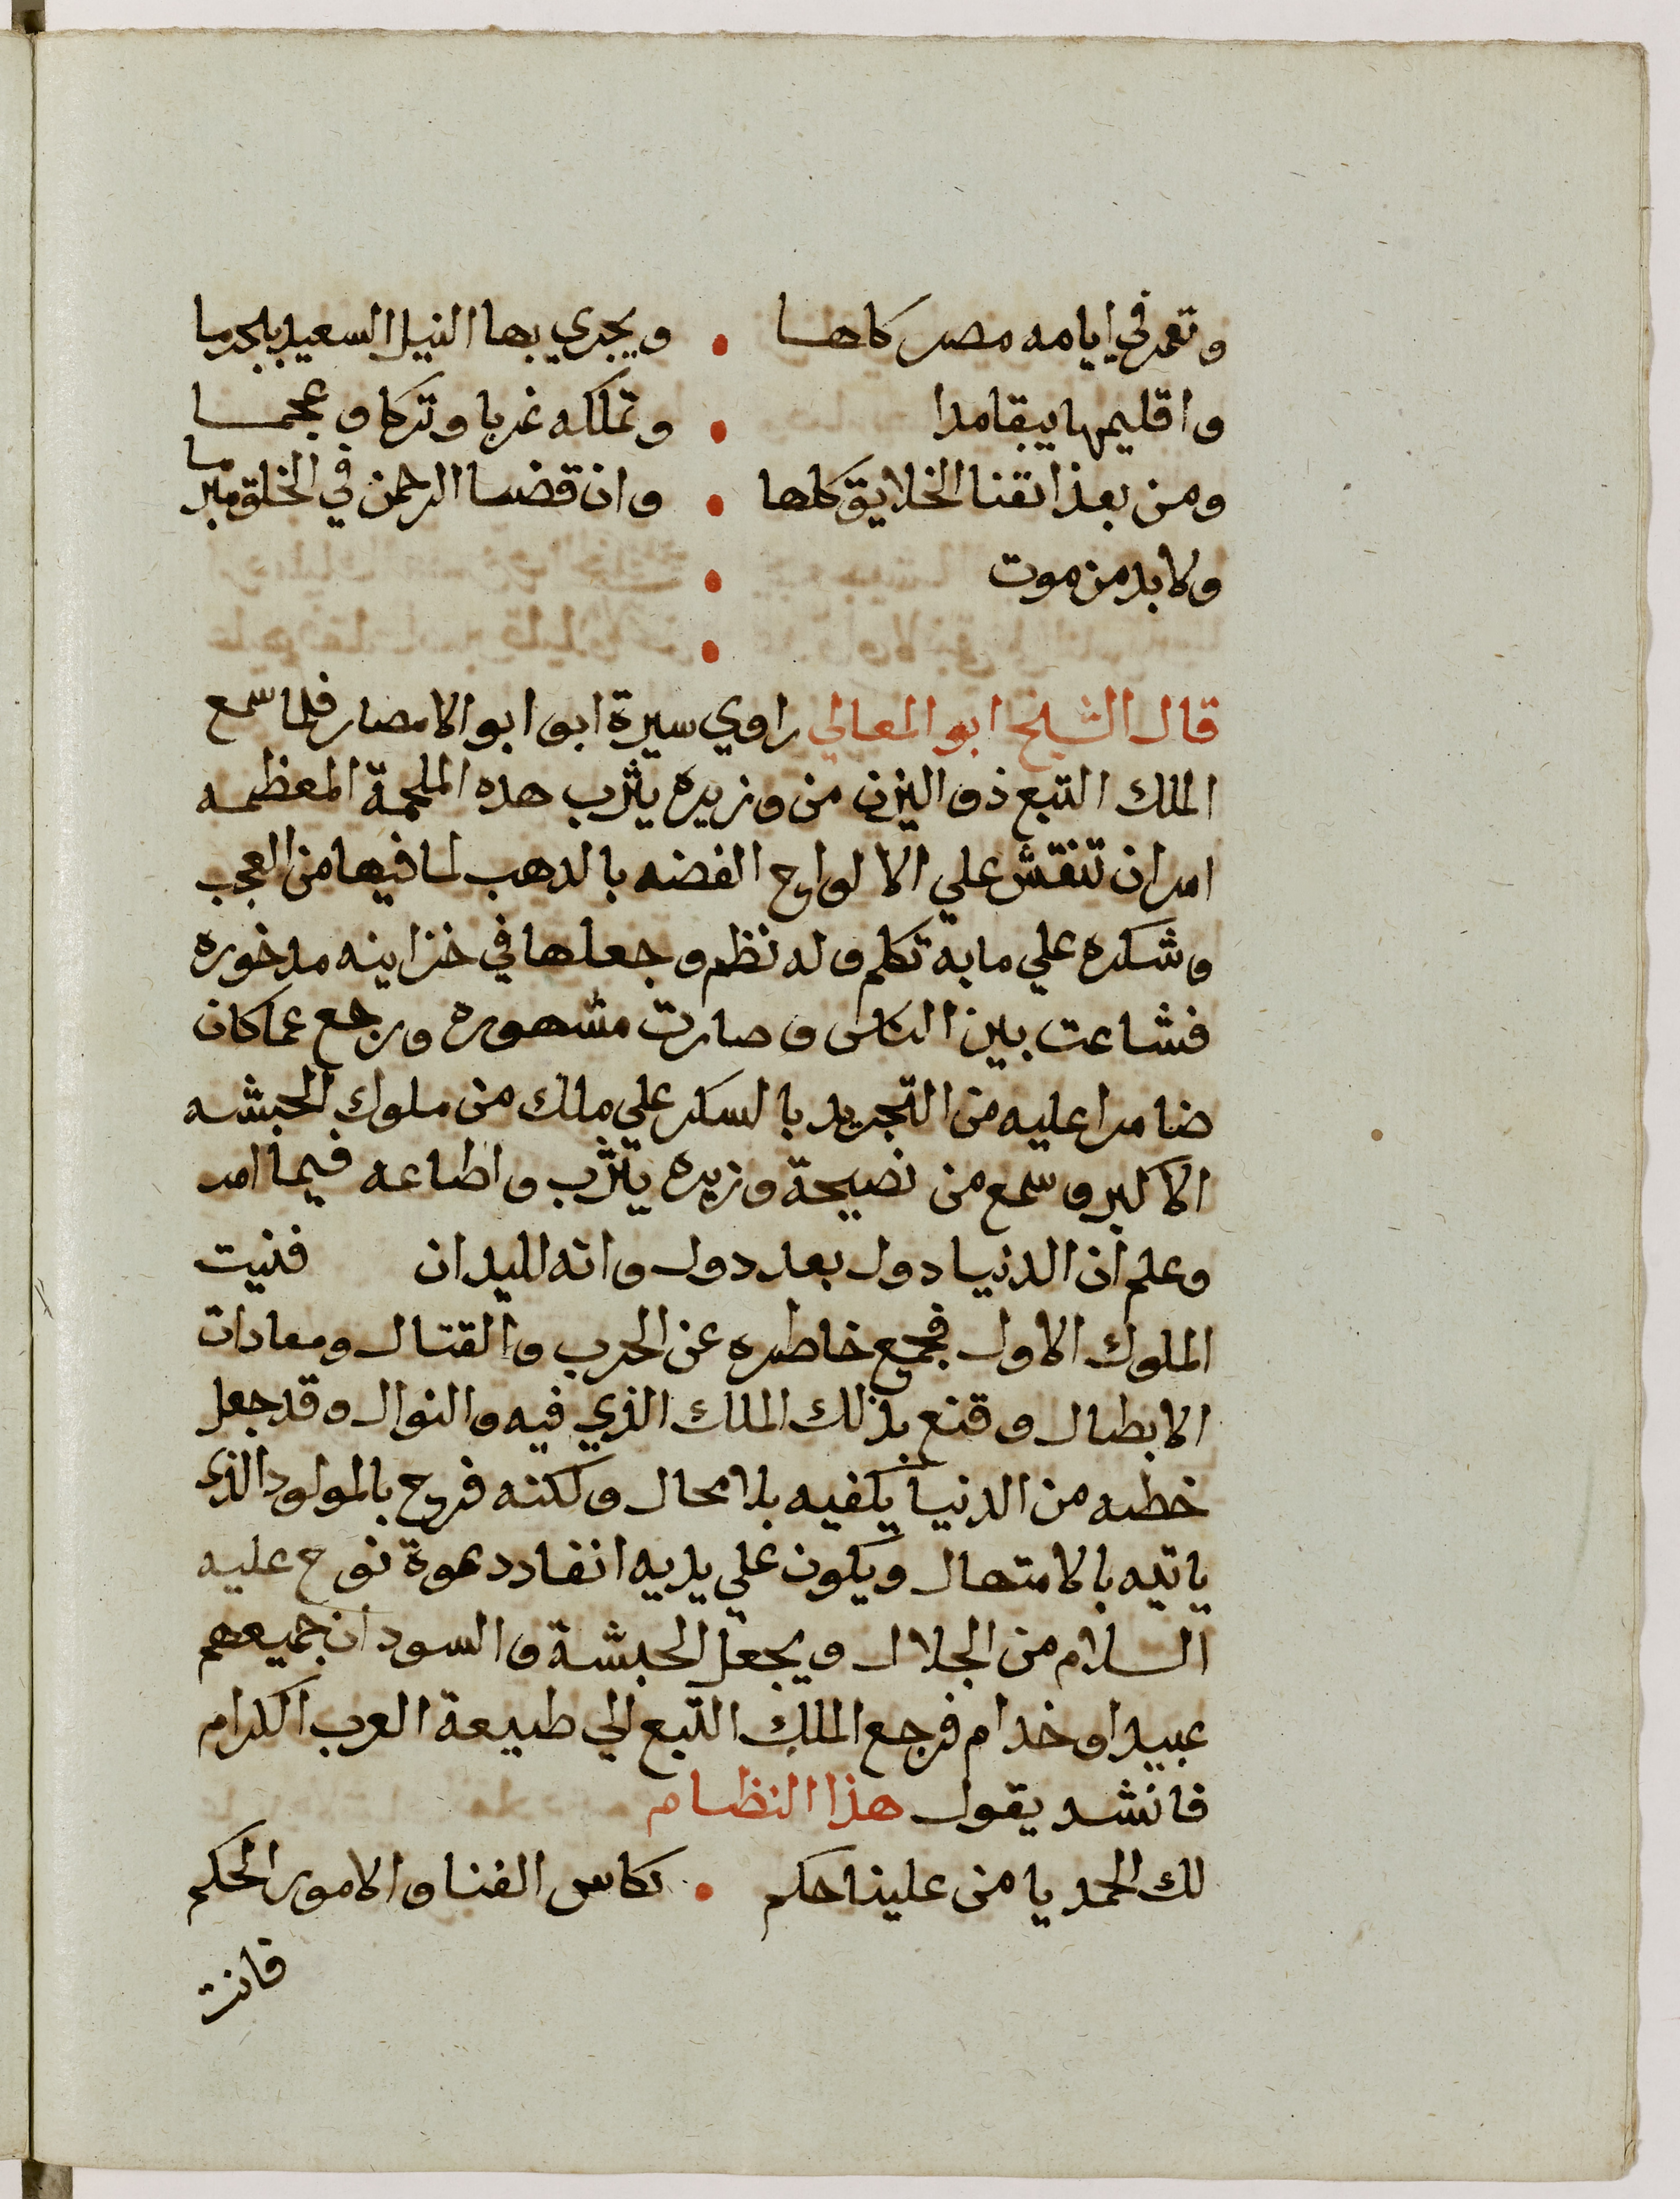 وتعمر في ايامه مصر كلها • ويجري بها النيل السعيد بلجرما
واقليمها يبقا مدا • وتملكه غربا وتركا وعجما
ومن بعد اتفنا الخلايق كلها • وان قضا الرحمن في الخلق مبرما
ولا بد من موت •
•
قال الشيخ ابو المعالي راوي سيرة ابو ابو الامصار فلما سمع
الملك التبع ذو اليزن من وزيره يثرب هده الملحمة المعظمه
امر ان تنقش علي الالواح الفضه بالدهب لما فيها من العجب
وشكره علي ما به تكلم وله نظم وجعلها في خزاينه مدخوره
فشاعت بين الناس وصارت مشهوره ورجع عما كان
ضامرا عليه من التجريد بالسكر علي ملك من ملوك الحبشه
الاكبر وسمع من نصيحة وزيره يثرب واطاعه فيما امر
وعلم ان الدنيا دول بعد دول وانه للبدان فنيت
الملوك الاول فجمع خاطره عن الحرب والقتال ومعادات
الابطال وقنع بذلك الملك الذي فيه والنوال وقد جعل
خطه من الدنيا يكفيه بلا محال ولكنه فرح بالمولود الذي
ياتيه بالامتهال ويكون علي يديه انفاد دعوة نوح عليه
السلام من الجلال ويجعل الحبشة والسودان جميعهم
عبيدا وخدام فرجع الملك التبع الي طبيعة العرب الكرام
فانشد يقول هذا النظام
لك الحمد يا من علينا حكم • بكاس الفنا والامور الحكم
فانت